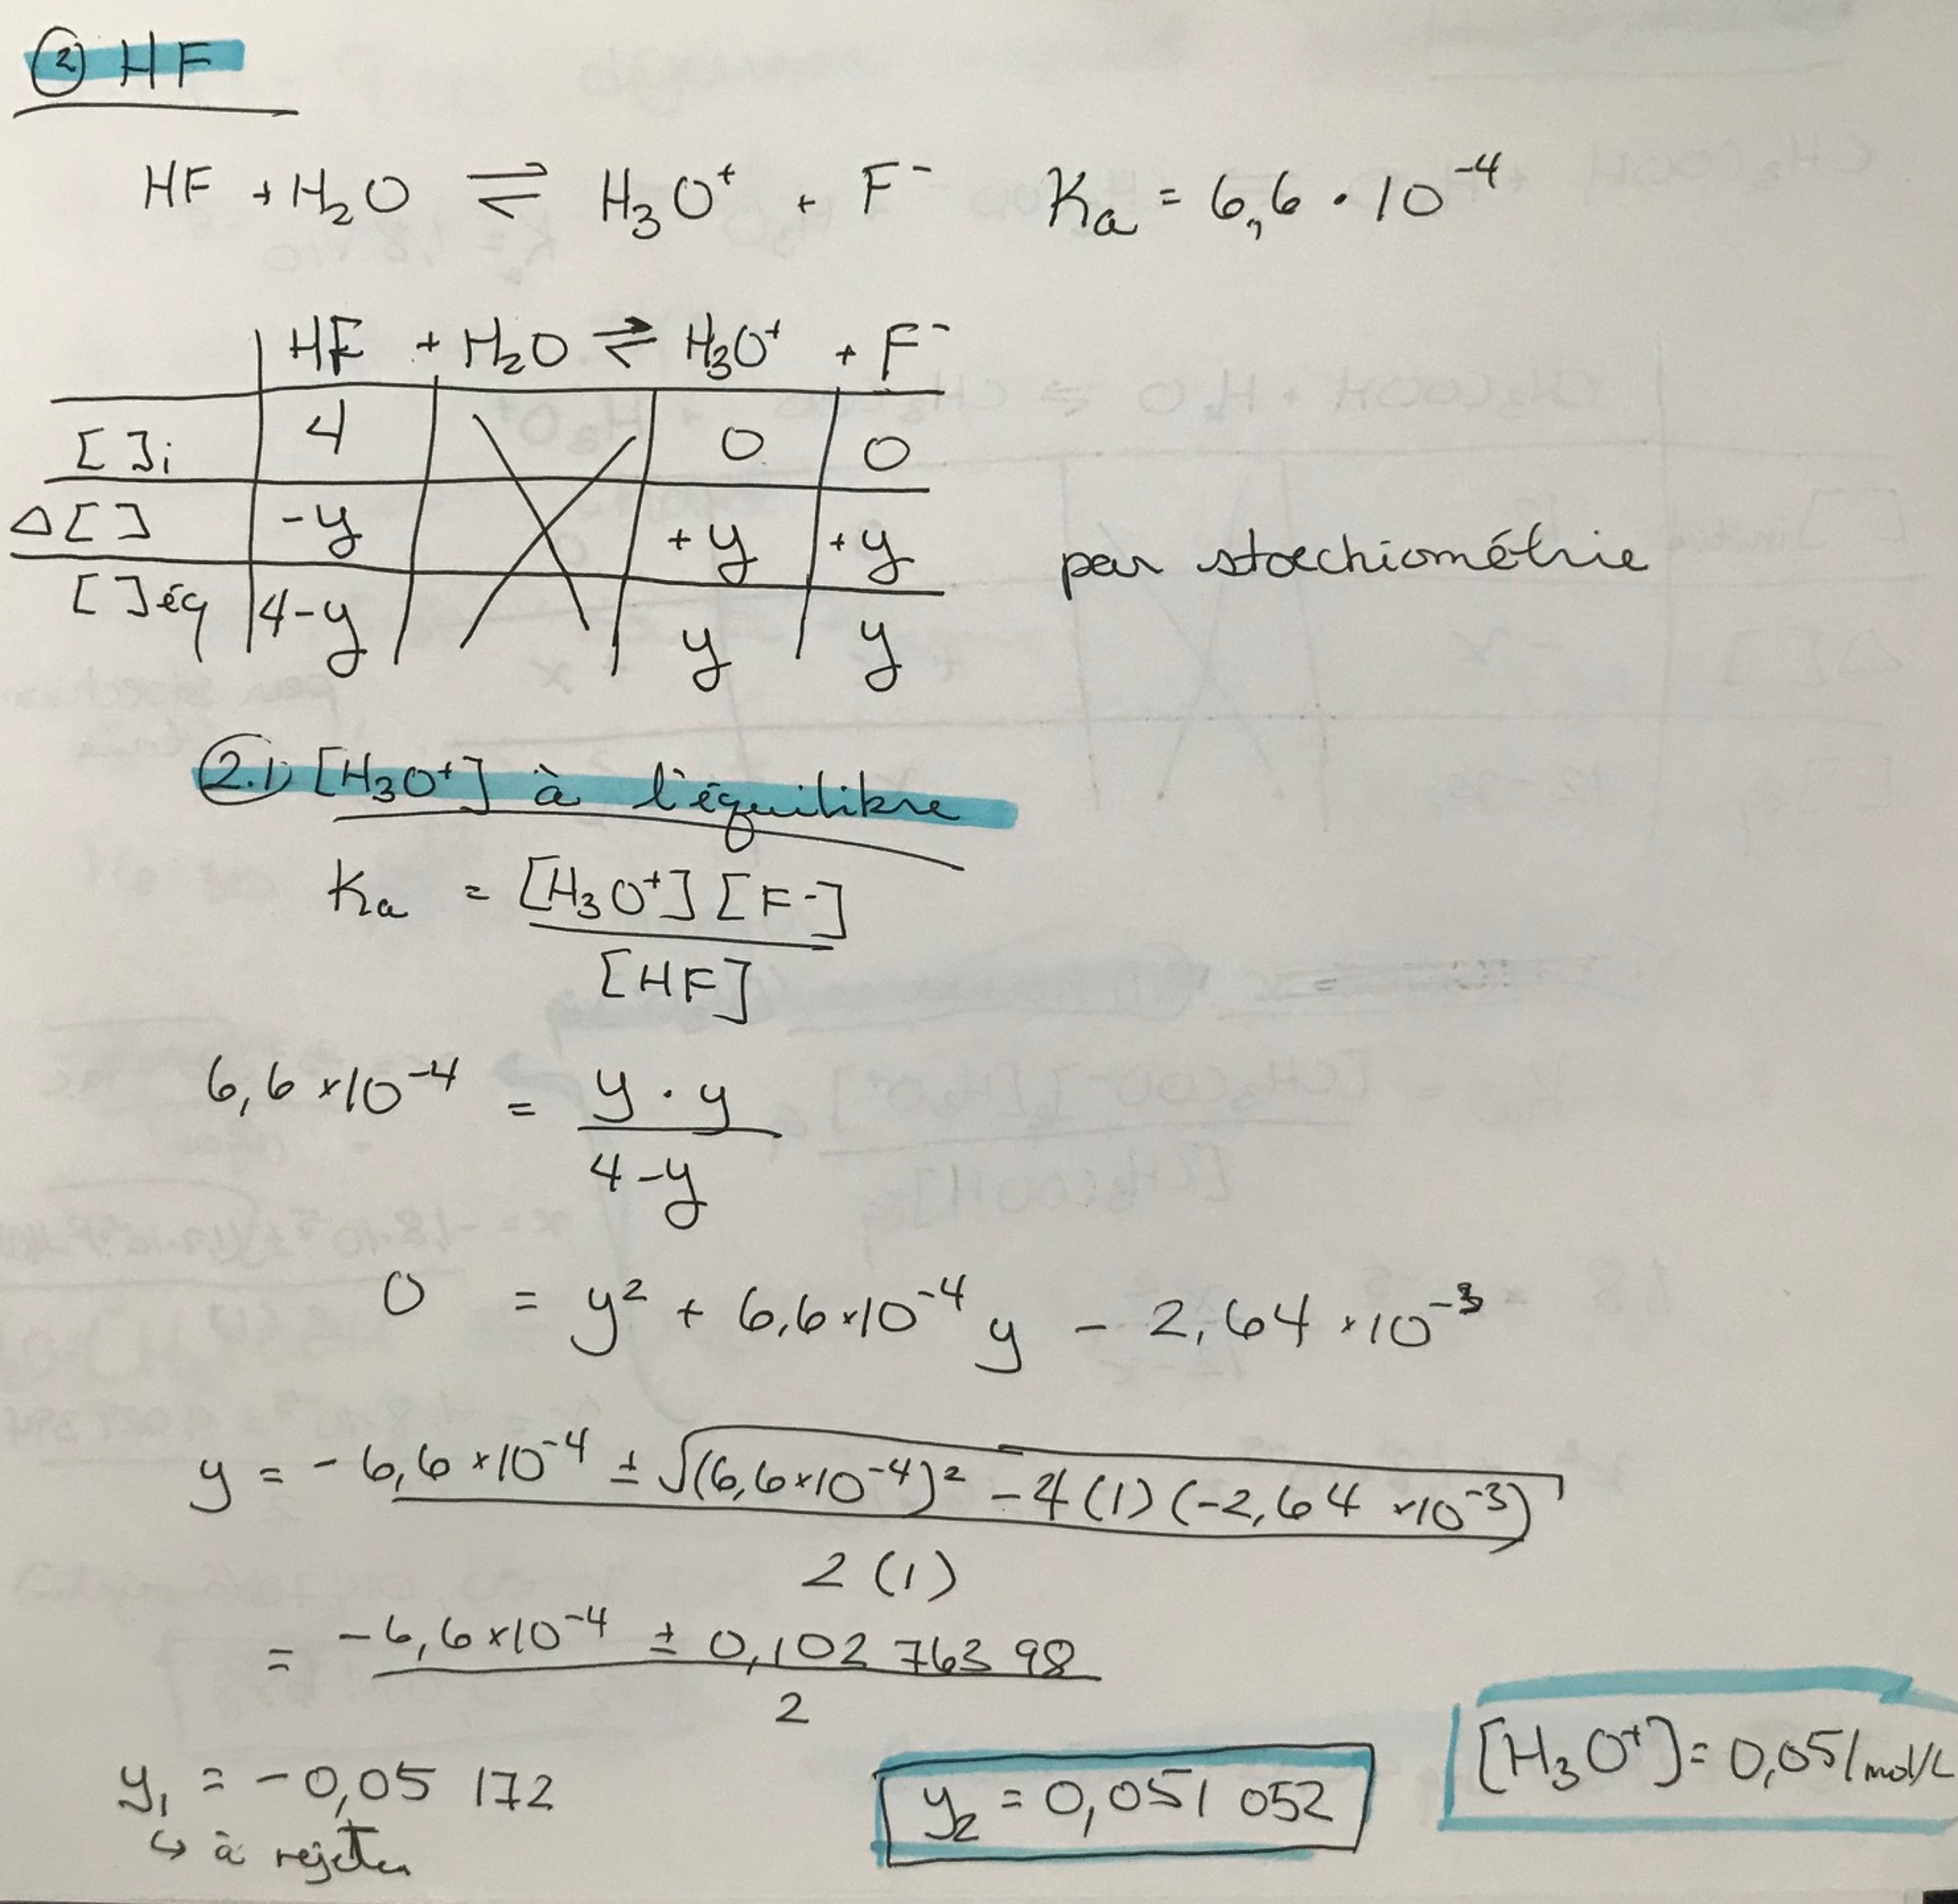 ② HF
HF + H₂O ⇌ H₃O⁺ + F⁻ Ka = 6,6 · 10⁻⁴
HF + H₂O ⇌ H₃O⁺ + F⁻
[ ]i 4 0 0
Δ[ ] -y +y +y
par stoechiométrie
[ ]éq 4-y y y
2.1) [H₃O⁺] à l'équilibre
Ka = [H₃O⁺] [F⁻]
[HF]
6,6 × 10⁻⁴ = y · y
4-y
0 = y² + 6,6 × 10⁻⁴ y - 2,64 × 10⁻³
y = -6,6 × 10⁻⁴ ± √(6,6 × 10⁻⁴)² - 4 (1) (-2,64 × 10⁻³)
2 (1)
= -6,6 × 10⁻⁴ ± 0,102 763 98
2
y₁ = -0,05 172 y₂ = 0,051 052 [H₃O⁺] = 0,051 mol/L
↳ à rejeter